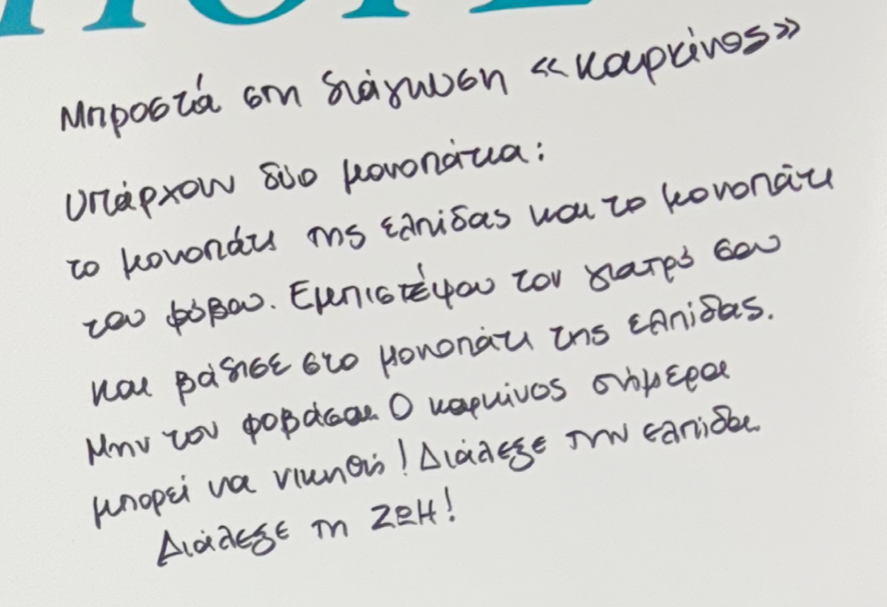 Μπροστά στη διάγνωση «καρκίνος»
υπάρχουν δύο μονοπάτια:
το μονοπάτι της ελπίδας και το μονοπάτι
του φόβου. Εμπιστέψου τον γιατρό σου
και βάδισε στο μονοπάτι της ελπίδας.
Μην τον φοβάσαι. Ο καρκίνος σήμερα
μπορεί να νικηθεί! Διάλεξε την ελπίδα.
Διάλεξε τη ΖΩΗ!